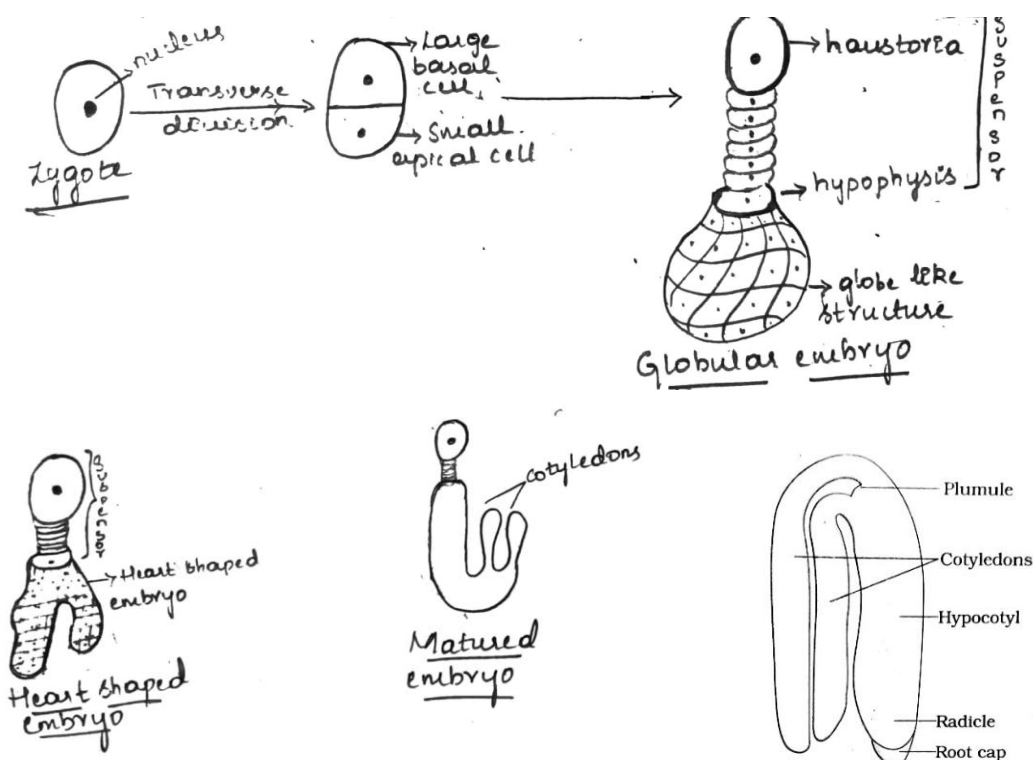 nucleus
Transverse
division
Zygote
Large
basal
cell
Small
apical cell
haustoria
suspensor
hypophysis
globe like
structure
Globular embryo
suspensor
Heart shaped
embryo
Heart shaped
embryo
cotyledons
Matured
embryo
Plumule
Cotyledons
Hypocotyl
Radicle
Root cap